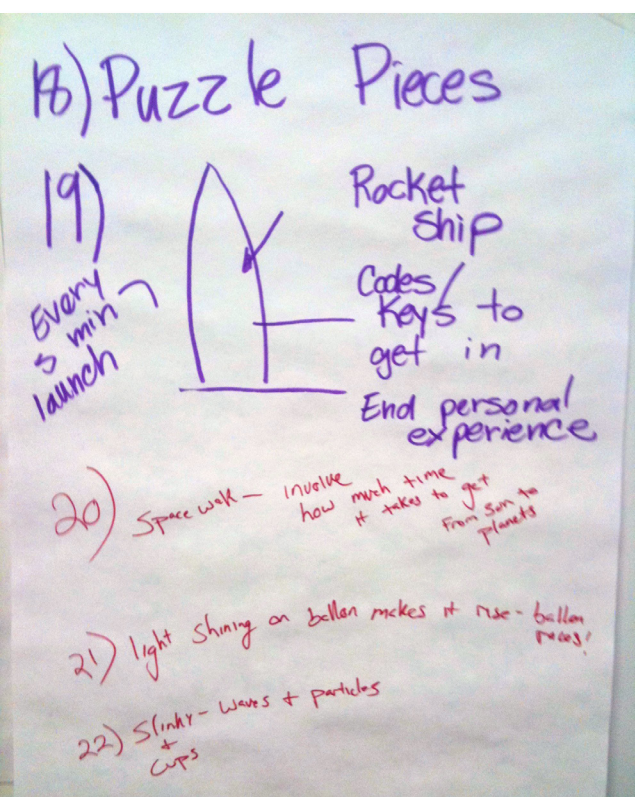 18) Puzzle Pieces
19)
Rocket
Ship
Codes/
Keys to
get in
End personal
experience
Every
5 min
launch
20) Space walk - involve
how much time
it takes to get
from sun to
planets
21) light shining on ballon makes it rise - ballon
races!
22) Slinky - waves + particles
+
cups